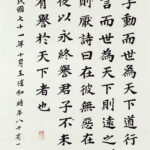 子動而世為天下道行
言而世為天下則遠之
則厭詩曰在彼無惡在
夜以永終譽君子不未
有譽於天下者也
民國七十一年十月王愷和時年八十有一